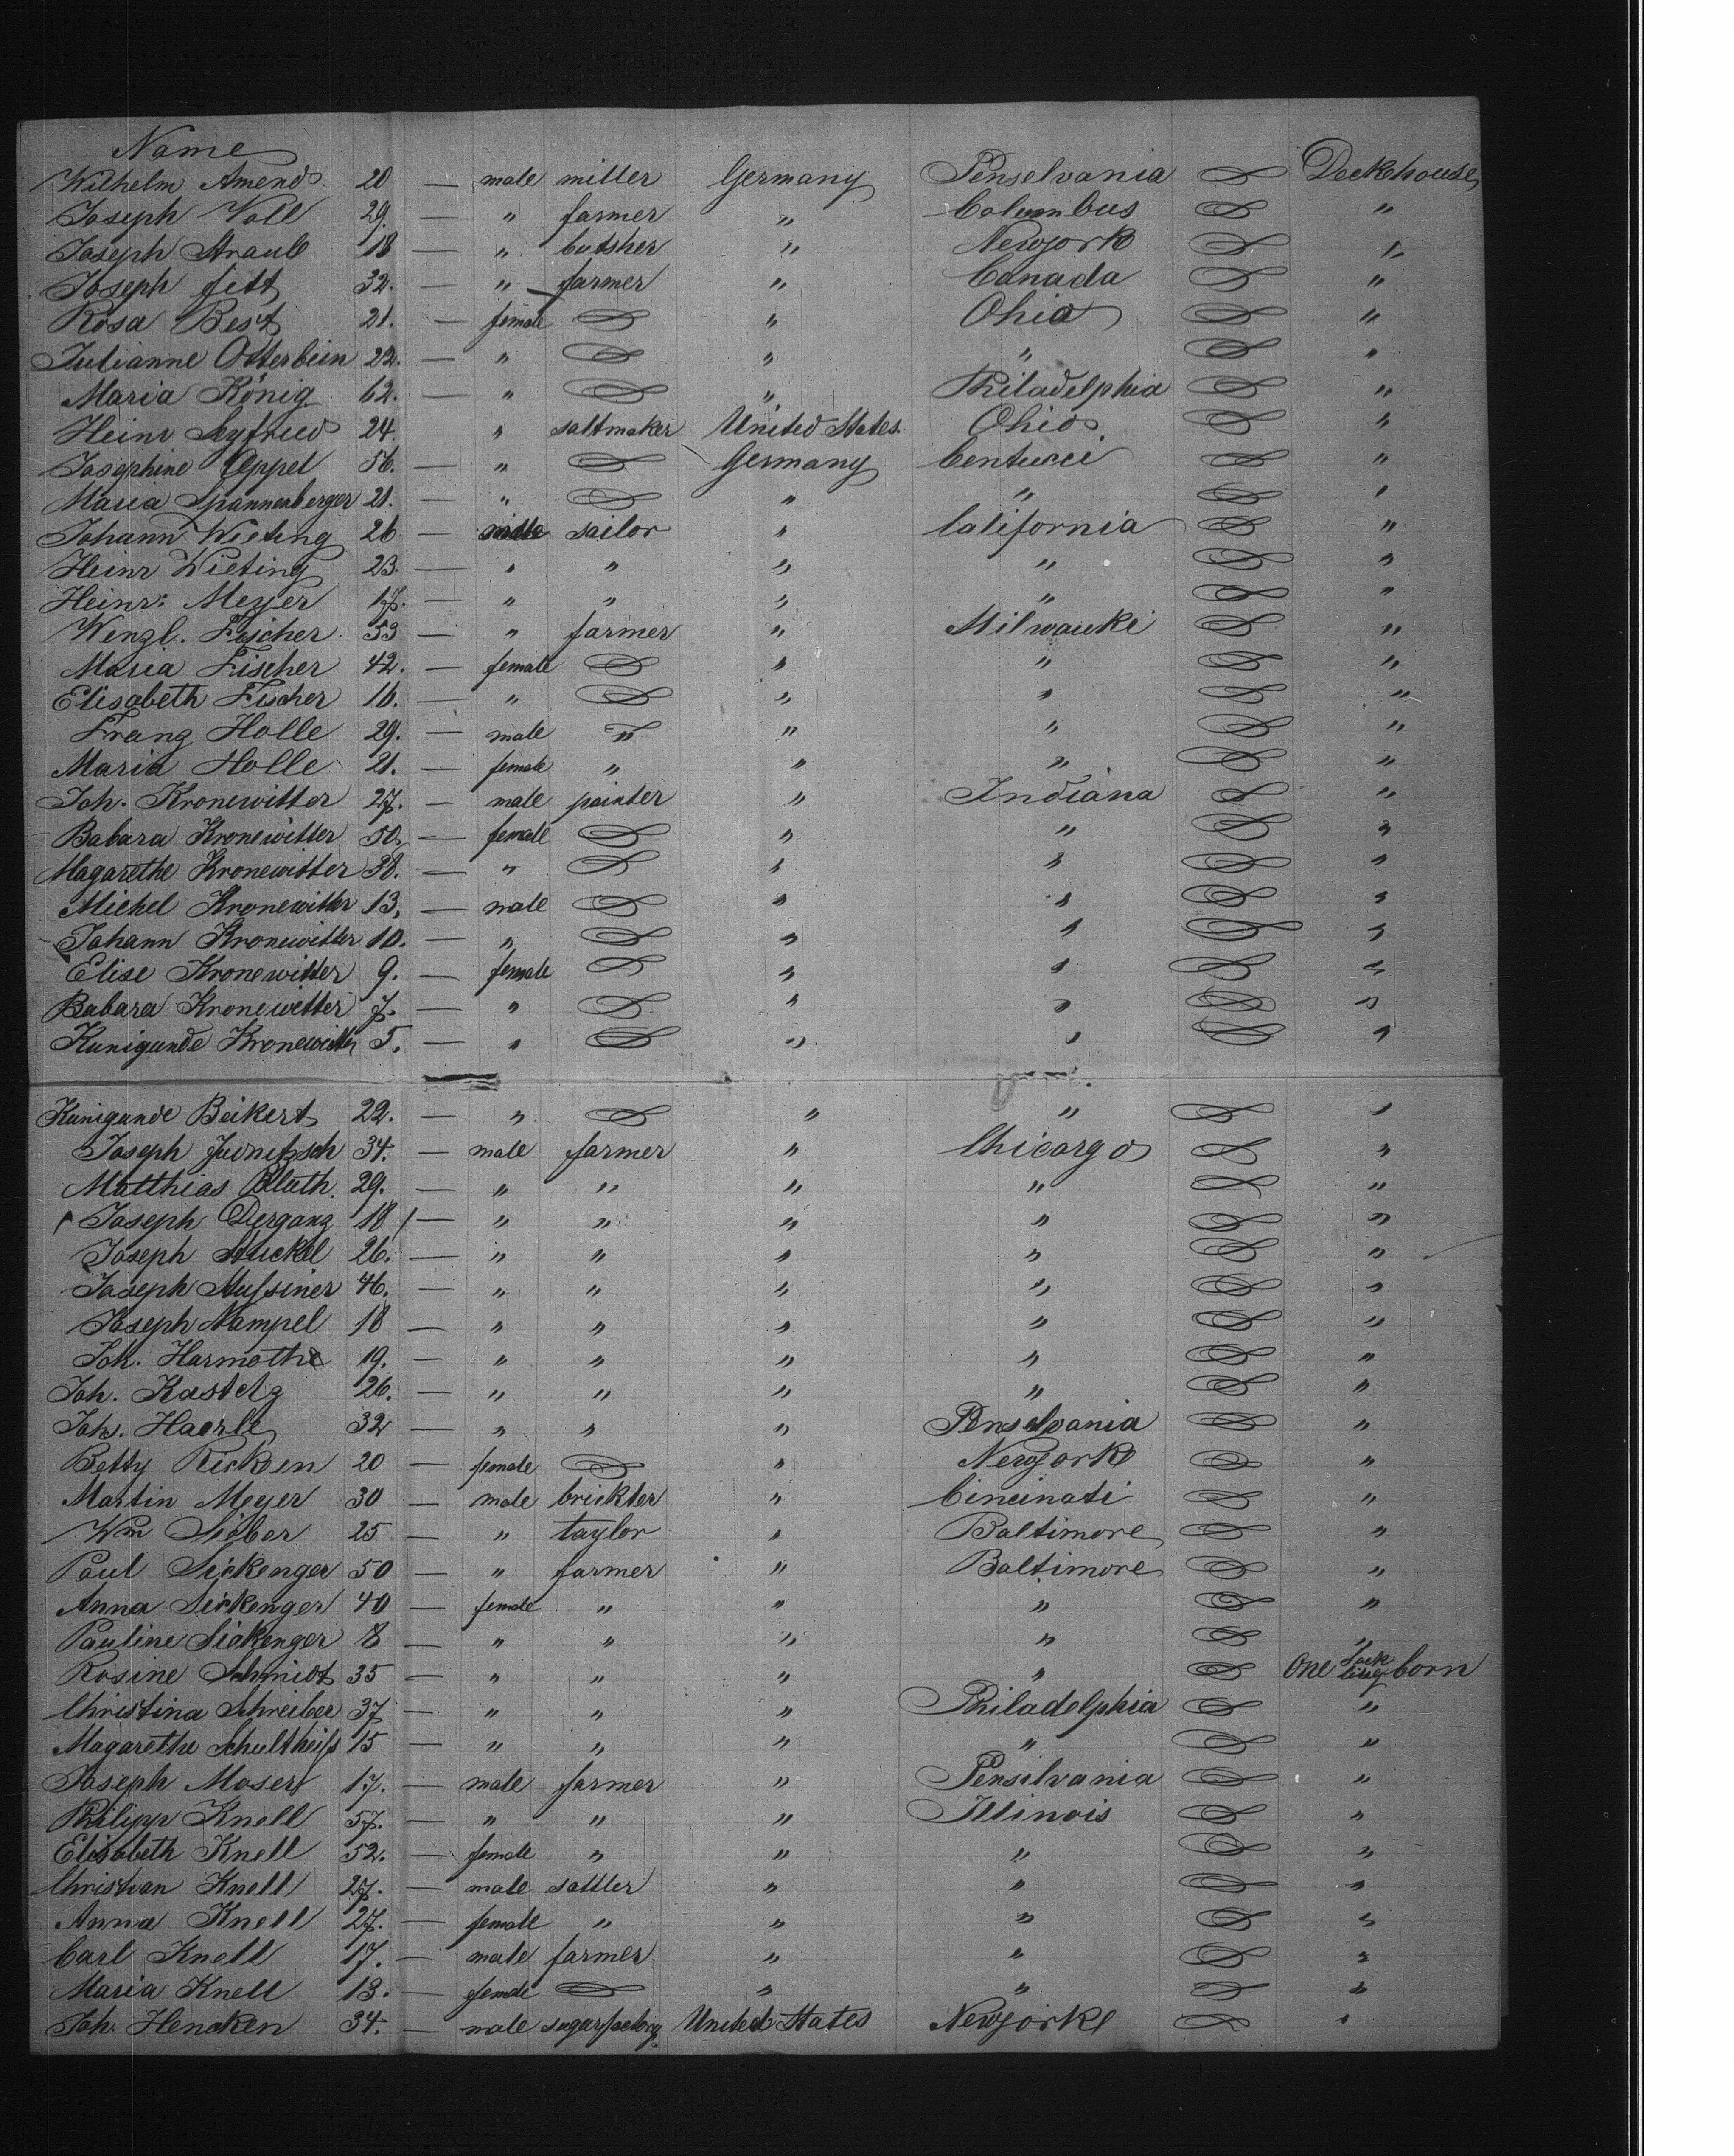 Name
Wilhelm Amend 20 — male miller Germany Penselvania Deckhouse
Joseph Voll 29. — " farmer " Columbus "
Joseph Straub 18 — " butsher " Newyork "
Joseph fett 32. — " farmer " Canada "
Rosa Best 21. — female " Ohio "
Julianne Otterbein 22. — " " " "
Maria König 62. — " " Philadelphia "
Heinr Seyfried 24. " saltmaker United States. Ohio "
Josephine Appel 56. — " Germany Centucci "
Maria Spannenberger 21. — " " " "
Johann Wieting 26 — male sailor " California "
Heinr Wieting 23. — " " " " "
Heinr: Meyer 17. — " " " " "
Wenzl. Fischer 53 — " farmer " Milwauki "
Maria Fischer 42. — female " " "
Elisabeth Fischer 16. — " " " "
Franz Holle 29. — male " " " "
Maria Holle 21. — female " " " "
Joh. Kronewitter 27. — male painter " Indiana "
Babara Kronewitter 50. — female " " "
Magarethe Kronewitter 38. — " " " "
Michel Kronewitter 13, — male " " "
Johann Kronewitter 10. — " " " "
Elise Kronewitter 9. — female " " "
Babara Kronewitter 7. — " " " "
Kunigunde Kronewitter 5. — " " " "
Kunigunde Beikert 22. — " " " "
Joseph 34. — male farmer " Chicargo "
Matthias Bluth. 29. — " " " " "
Joseph Dergang 18 — " " " " "
Joseph Stuckel 26. — " " " " "
Joseph 46. — " " " " "
Joseph Nampel 18 — " " " " "
Joh. Harmoth 19. — " " " " "
Joh. 26. — " " " " "
Joh. Haerle 32 — " " " Penselvania "
Betty Ricksen 20 — female " Newyork "
Martin Meyer 30 — male brickter " Cincinati "
Wm Sieber 25 — " taylor " Baltimore "
Paul Sickenger 50 — " farmer " Baltimore "
Anna Sickenger 40 — female " " " "
Pauline Sickenger 8 — " " " " "
Rosine Schmidt 35 — " " " " One born
Christina Schreiber 37 — " " " Philadelphia "
Magarethe Schultheiß 15 — " " " " "
Joseph Moser 17. — male farmer " Pensilvania "
Philipp Knell 57. — " " " Illinois "
Elisabeth Knell 52. — female " " " "
Christian Knell 27. — male sattler " " "
Anna Knell 27. — female " " " "
Carl Knell 17. — male farmer " " "
Maria Knell 13. — female " " "
Joh. Hencken 34. — male sugarfactory United States Newyork "